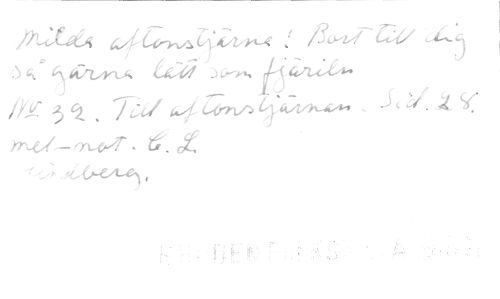 Milda aftonstjärna! Bort till dig
så gärna lätt som fjäriln
No 32. Till aftonstjärnan. Sid. 28.
mel-not. C. L.
Lindberg.